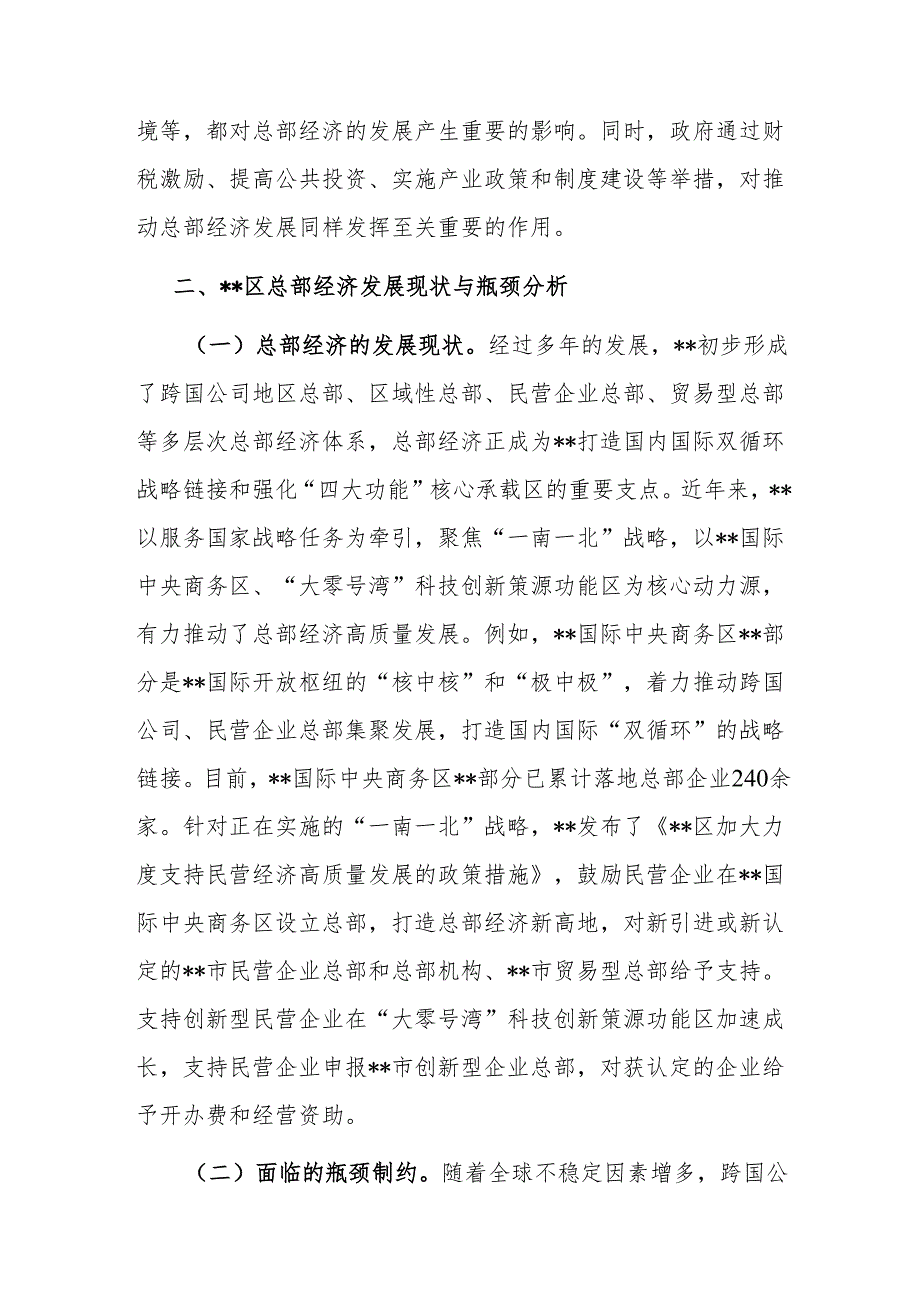 境等，都对总部经济的发展产生重要的影响。同时，政府通过财
税激励、提高公共投资、实施产业政策和制度建设等举措，对推
动总部经济发展同样发挥至关重要的作用。
二、**区总部经济发展现状与瓶颈分析
（一）总部经济的发展现状。经过多年的发展，**初步形成
了跨国公司地区总部、区域性总部、民营企业总部、贸易型总部
等多层次总部经济体系，总部经济正成为**打造国内国际双循环
战略链接和强化“四大功能”核心承载区的重要支点。近年来，**
以服务国家战略任务为牵引，聚焦“一南一北”战略，以**国际
中央商务区、“大零号湾”科技创新策源功能区为核心动力源，
有力推动了总部经济高质量发展。例如，**国际中央商务区**部
分是**国际开放枢纽的“核中核”和“极中极”，着力推动跨国
公司、民营企业总部集聚发展，打造国内国际“双循环”的战略
链接。目前，**国际中央商务区**部分已累计落地总部企业240余
家。针对正在实施的“一南一北”战略，**发布了《**区加大力
度支持民营经济高质量发展的政策措施》，鼓励民营企业在**国
际中央商务区设立总部，打造总部经济新高地，对新引进或新认
定的**市民营企业总部和总部机构、**市贸易型总部给予支持。
支持创新型民营企业在“大零号湾”科技创新策源功能区加速成
长，支持民营企业申报**市创新型企业总部，对获认定的企业给
予开办费和经营资助。
（二）面临的瓶颈制约。随着全球不稳定因素增多，跨国公